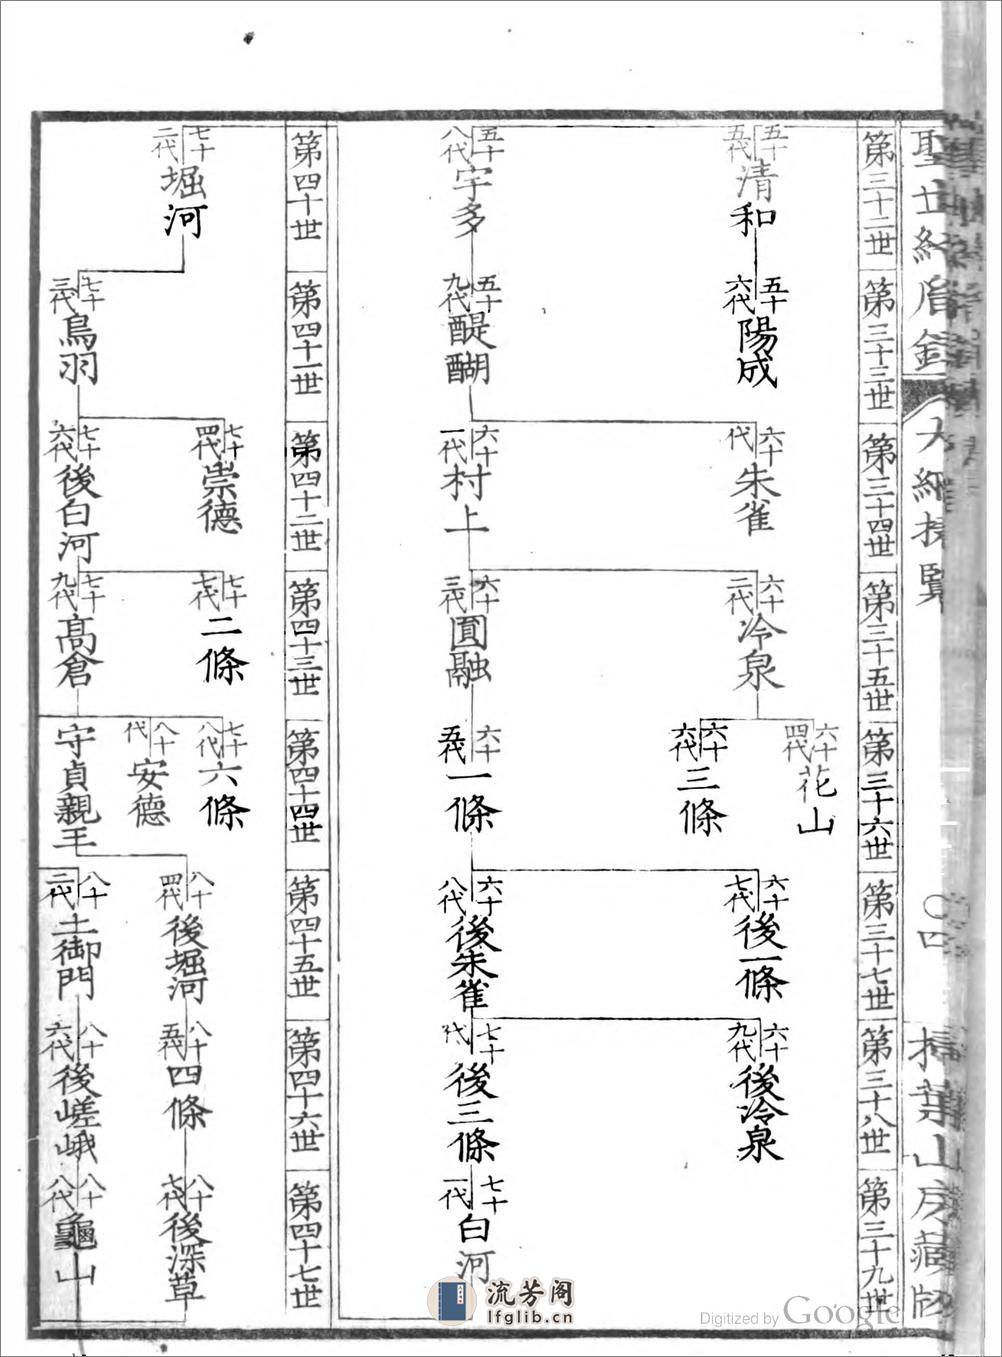 大綱捷覽
第三十二世
第三十三世
第三十四世
第三十五世
第三十六世
第三十七世
第三十八世
第三十九世
五十五代 清和
五十六代 陽成
六十代 朱雀
六十二代 冷泉
六十四代 花山
六十六代 三條
六十七代 後一條
六十九代 後冷泉
五十八代 宇多
五十九代 醍醐
六十一代 村上
六十三代 圓融
六十五代 一條
六十八代 後朱雀
七十代 後三條
七十一代 白河
第四十世
第四十一世
第四十二世
第四十三世
第四十四世
第四十五世
第四十六世
第四十七世
七十二代 堀河
七十三代 鳥羽
七十四代 崇德
七十六代 後白河
七十七代 二條
七十九代 髙倉
七十八代 六條
八十代 安德
守貞親王
八十四代 後堀河
八十五代 四條
八十七代 後深草
八十二代 土御門
八十六代 後嵯峨
八十八代 龜山
〇四
掃葉山房藏版
流芳阁
lfglib.cn
Digitized by Google